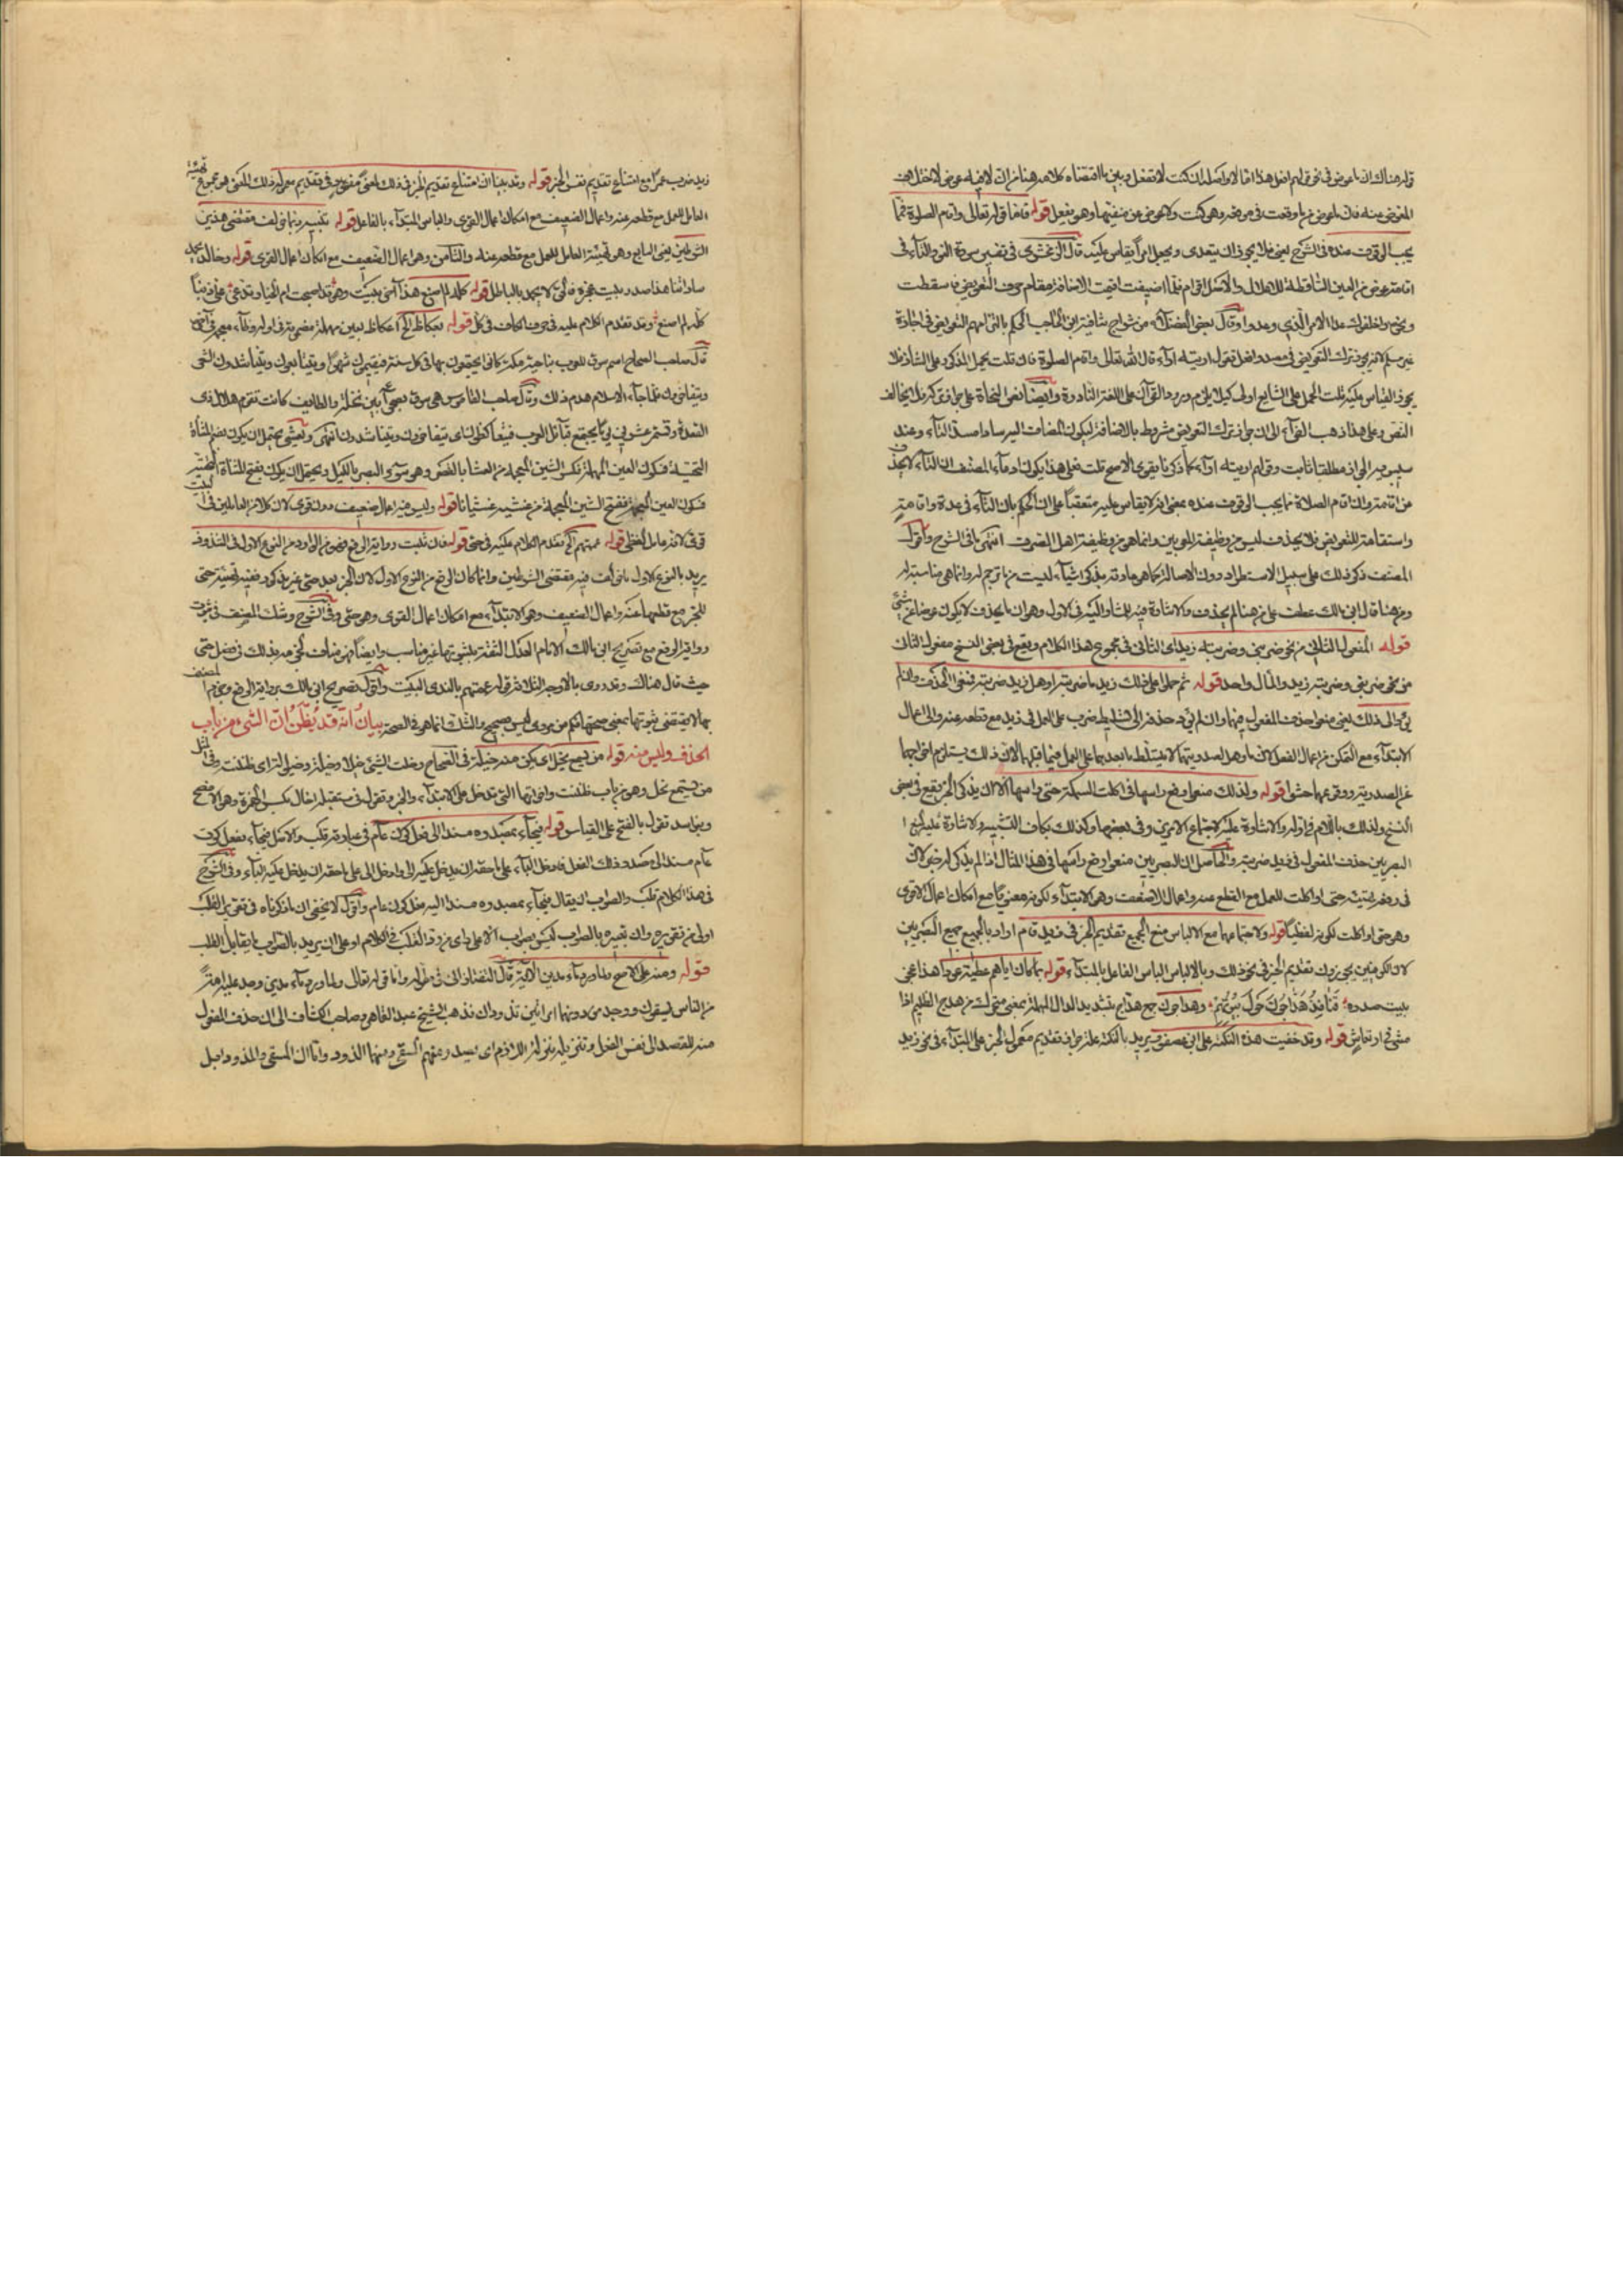 قوله هناك ان ما عوض في نحو قولهم افعل هذا اما لا واصله ان كنت لا تفعل وبين ما اقتضاه كلامه هنا من ان لا
المعوض عنه فان ما عوض عن ما وقعت في موضعه وهو كنت ولا عوض عن منفيها وهو تفعل قوله فاما قوله تعالى واقام الصلوة فمما
يجب الوقوف عنده في الشرح يعني فلا يجوز ان يتعدى ويجعل امرا يقاس عليه قال الزمخشري في تفسير سورة النور التاء في
اقامة عوض من العين الساقطة للاعلال والاصل اقوام فلما اضيفت اقيمت الاضافة مقام حرف التعويض فاسقطت
ونحوه واخلفوك عدا الامر الذي وعدوا وقال بعض الفضلاء من شراح شافية ابن الحاجب الحكم بالتزامهم التعويض في اجازة
سيبويه ترك التعويض في مصدر افعل فتقول اريته اراء قال الله تعالى واقام الصلوة فان قلت يحمل المذكور على الشاذ فلا
يجوز القياس عليه قلت الحمل على الشايع اولى كيلا يلزم ورود القرآن على اللغة النادرة وايضا نص النحاة على جوازه
النص وعلى هذا ذهب الفراء الى ان جواز ترك التعويض مشروط بالاضافة ليكون المضاف اليه سادا مسد التاء وعند
سيبويه الجواز مطلقا ثابت وقولهم اريته اراء كما ذكرنا يقوى الاصح قلت فعلى هذا يكون ادعاء المصنف ان التاء لا يحذف
من اقامة وان اقام الصلاة مما يجب الوقوف عنده بمعنى انه لا يقاس عليه متعقبا على ان الحكم بان التاء في عدة واقامة
واستقامة للتعويض فلا يحذف ليس من وظيفة المعربين وانما هو من وظيفة اهل الصرف انتهى ما في الشرح واقول
المصنف ذكر ذلك على سبيل الاستطراد دون الاصالة كما هو عادته بذكر اشياء ليست مما ترجم له وانما هي مناسبة له
ومن هنا قال ابن مالك عطف على من هنا لم يحذف والاشارة فيه للمشار اليه في الاول وهو ان ما يحذف لا يكون عوضا عن شيء
قوله المفعول الثاني من نحو ضربني وضربته زيد اي الثاني في مجموع هذا الكلام ويقع في بعض النسخ مفعول الثاني
من نحو ضربني وضربته زيد والمآل واحد قوله ثم حملوا على ذلك زيد ما ضربته او هل زيد ضربته فمنعوا الحذف وان لم
يؤد الى ذلك يعني منعوا حذف المفعول فيهما وان لم يؤد حذفه الى تسليط ضرب على العمل في زيد مع قطعه عنه والى اعمال
الابتداء مع التمكن من اعمال الفعل لان ما وهل لصدريتهما لا يتسلط ما بعدهما على العمل فيما قبلهما لان ذلك يستلزم اخراجهما
عن الصدرية ووقوعهما حشوا قوله ولذلك منعوا رفع راسها في اكلت السمكة حتى راسها الا ان يذكر الخبر يقع في بعض
النسخ ولذلك باللام في اوله والاشارة عليه لاجتماع الامرين وفي بعضها وكذلك بكاف التشبيه والاشارة عليه لمنع
البصريين حذف المفعول في زيد ضربته والحاصل ان البصريين منعوا رفع راسها في هذا المثال اذا لم يذكر له خبر لان
في رفعه تهيئة حتى او اكلت للعمل مع القطع عنه واعمال الاضعف وهو الابتداء لكونه معنويا مع امكان اعمال الاقوى
وهو حتى او اكلت لكونه لفظيا قوله ولاجتماعهما مع الالباس منع الجميع تقديم الخبر في زيد قام اراد بالجميع جميع البصريين
لان الكوفيين يجوزون تقديم الخبر في نحو ذلك وبالالباس الباس الفاعل بالمبتداء قوله بما كان اياهم عطية عودا هذا عجز
بيت صدره قنافذ هداجون حول بيوتهم وهداجون جمع هداج بتشديد الدال المهملة بمعنى متحرك من هدج الظليم اذا
مشى في ارتعاش قوله وقد خفيت هذه النكتة على ابن عصفور يريد بالنكتة علة جواز تقديم معمول الخبر على المبتداء في نحو زيد
زيد ضرب عمرا مع امتناع تقديم نفس الخبر قوله وقد بينا ان امتناع تقديم الخبر في ذلك لمعنى مفقود في تقديم معموله ذلك المعنى هو مجموع تهيئة
العامل للعمل مع قطعه عنه واعمال الضعيف مع امكان اعمال القوى والباس المبتداء بالفاعل قوله تنبيه ربما خولف مقتضى هذين
الشرطين يعني السابع وهو تهيئة العامل للعمل مع قطعه عنه والثامن وهو اعمال الضعيف مع امكان اعمال القوى قوله وخالد يحمد
ساداتنا هذا صدر بيت عجزه بالحق لا يحمد بالباطل قوله كله لم اصنع هذا آخر بيت وهو قد اصبحت ام الخيار تدعي علي ذنبا
كله لم اصنع وقد تقدم الكلام عليه في حرف الكاف في كل قوله بعكاظ الخ عكاظ بعين مهملة مضمومة في اوله وظاء معجمة في آخره
قال صاحب الصحاح اسم سوق للعرب بناحية مكة كانوا يجتمعون بها في كل سنة فيقيمون شهرا ويتبايعون ويتناشدون الشعر
ويتفاخرون فلما جاء الاسلام هدم ذلك وقال صاحب القاموس هو سوق بصحراء بين نخلة والطايف كانت تقوم هلال ذي
القعدة وتستمر عشرين يوما يجتمع قبائل العرب فيتعاكظون اي يتفاخرون ويتناشدون انتهى ويعشي يحتمل ان يكون بضم المثناة
التحتية فسكون العين المهملة فكسر الشين المعجمة من العشا بالقصر وهو سوء البصر بالليل ويحتمل ان يكون بفتح المثناة التحتية
فسكون الغين المعجمة ففتح الشين المعجمة من غشيه غشيانا قوله وليس فيه اعمال ضعيف دون قوى لان كلا من العاملين في البيت
قوى لانه عامل لفظي قوله عمتهم الخ تقدم الكلام عليه في حتى قوله فان ثبت رواية الرفع فهو من الوارد من النوع الاول في الشذوذ
يريد بالنوع الاول ما خولف فيه مقتضى الشرطين وانما كان الرفع من النوع الاول لان الخبر بعد حتى غير مذكور ففيه تهيئة حتى
للجر مع قطعها عنه واعمال الضعيف وهو الابتداء مع امكان اعمال القوى وهو حتى وفي الشرح وشك المصنف في ثبوت
رواية الرفع مع تصريح ابن مالك الامام العدل الثقة بثبوتها غير مناسب وايضا فهو مناف لجزمه بذلك في فصل حتى
حيث قال هناك وقد روى بالاوجه الثلاثة قوله عمتهم بالندى البيت واقول تصريح ابن مالك برواية الرفع وجزم المصنف
بها لا يقتضي ثبوتها بمعنى صحتها فكم من مروى ليس بصحيح والشك انما هو في الصحة بيان انه قد يظن ان الشيء من باب
الحذف وليس منه قوله من يسمع يخل اي يكن منه خيلة في الصحاح وخلت الشيء خيلا وخيلة ومخيلة اي ظننت وفي المثل
من يسمع يخل وهو من باب ظننت واخواتها التي تدخل على الابتداء والخبر وتقول في مستقبله اخال بكسر الهمزة وهو الافصح
وبنو اسد تقول بالفتح على القياس قوله فيجاء بمصدره مسندا الى فعل كون عام في عبارته قلب والاصل فيجاء بفعل كون
عام مسندا الى مصدر ذلك الفعل فادخل الباء على ما حقه ان يدخل عليه الى وادخل الى على ما حقه ان يدخل عليه الباء وفي الشرح
في هذا الكلام قلب والصواب ان يقال فيجاء بمصدره مسندا اليه فعل كون عام واقول لا يخفى ان ما ذكرناه في تقرير القلب
اولى من تقريره وان تعبيره بالصواب ليس بصواب الا على راي من رد القلب في الكلام او على ان يريد بالصواب ما يقابل القلب
قوله ومنه على الاصح ولما ورد ماء مدين الآية قال التفتازاني في مطوله واما قوله تعالى ولما ورد ماء مدين وجد عليه امة
من الناس يسقون ووجد من دونهم امراتين تذودان فذهب الشيخ عبد القاهر وصاحب الكشاف الى ان حذف المفعول
منه للقصد الى نفس الفعل وتنزيله منزلة اللازم اي يصدر عنهم السقى ومنهما الذود واما ان المسقى والمذود ابل